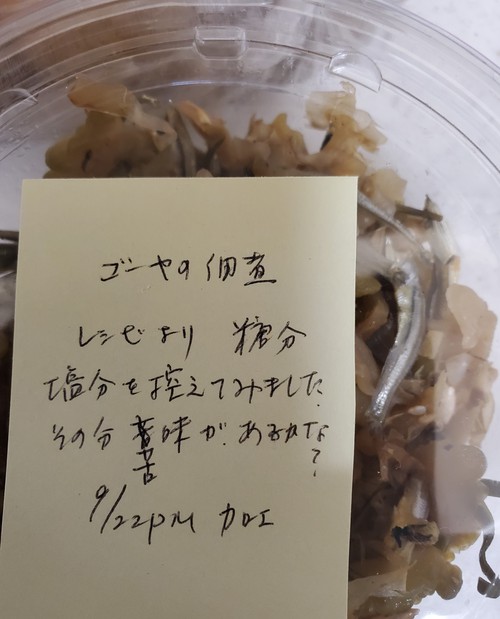 ゴーヤの佃煮
レシピより 糖分
塩分を控えてみました。
その分苦味があるかな?
苦
9/22PM 加工